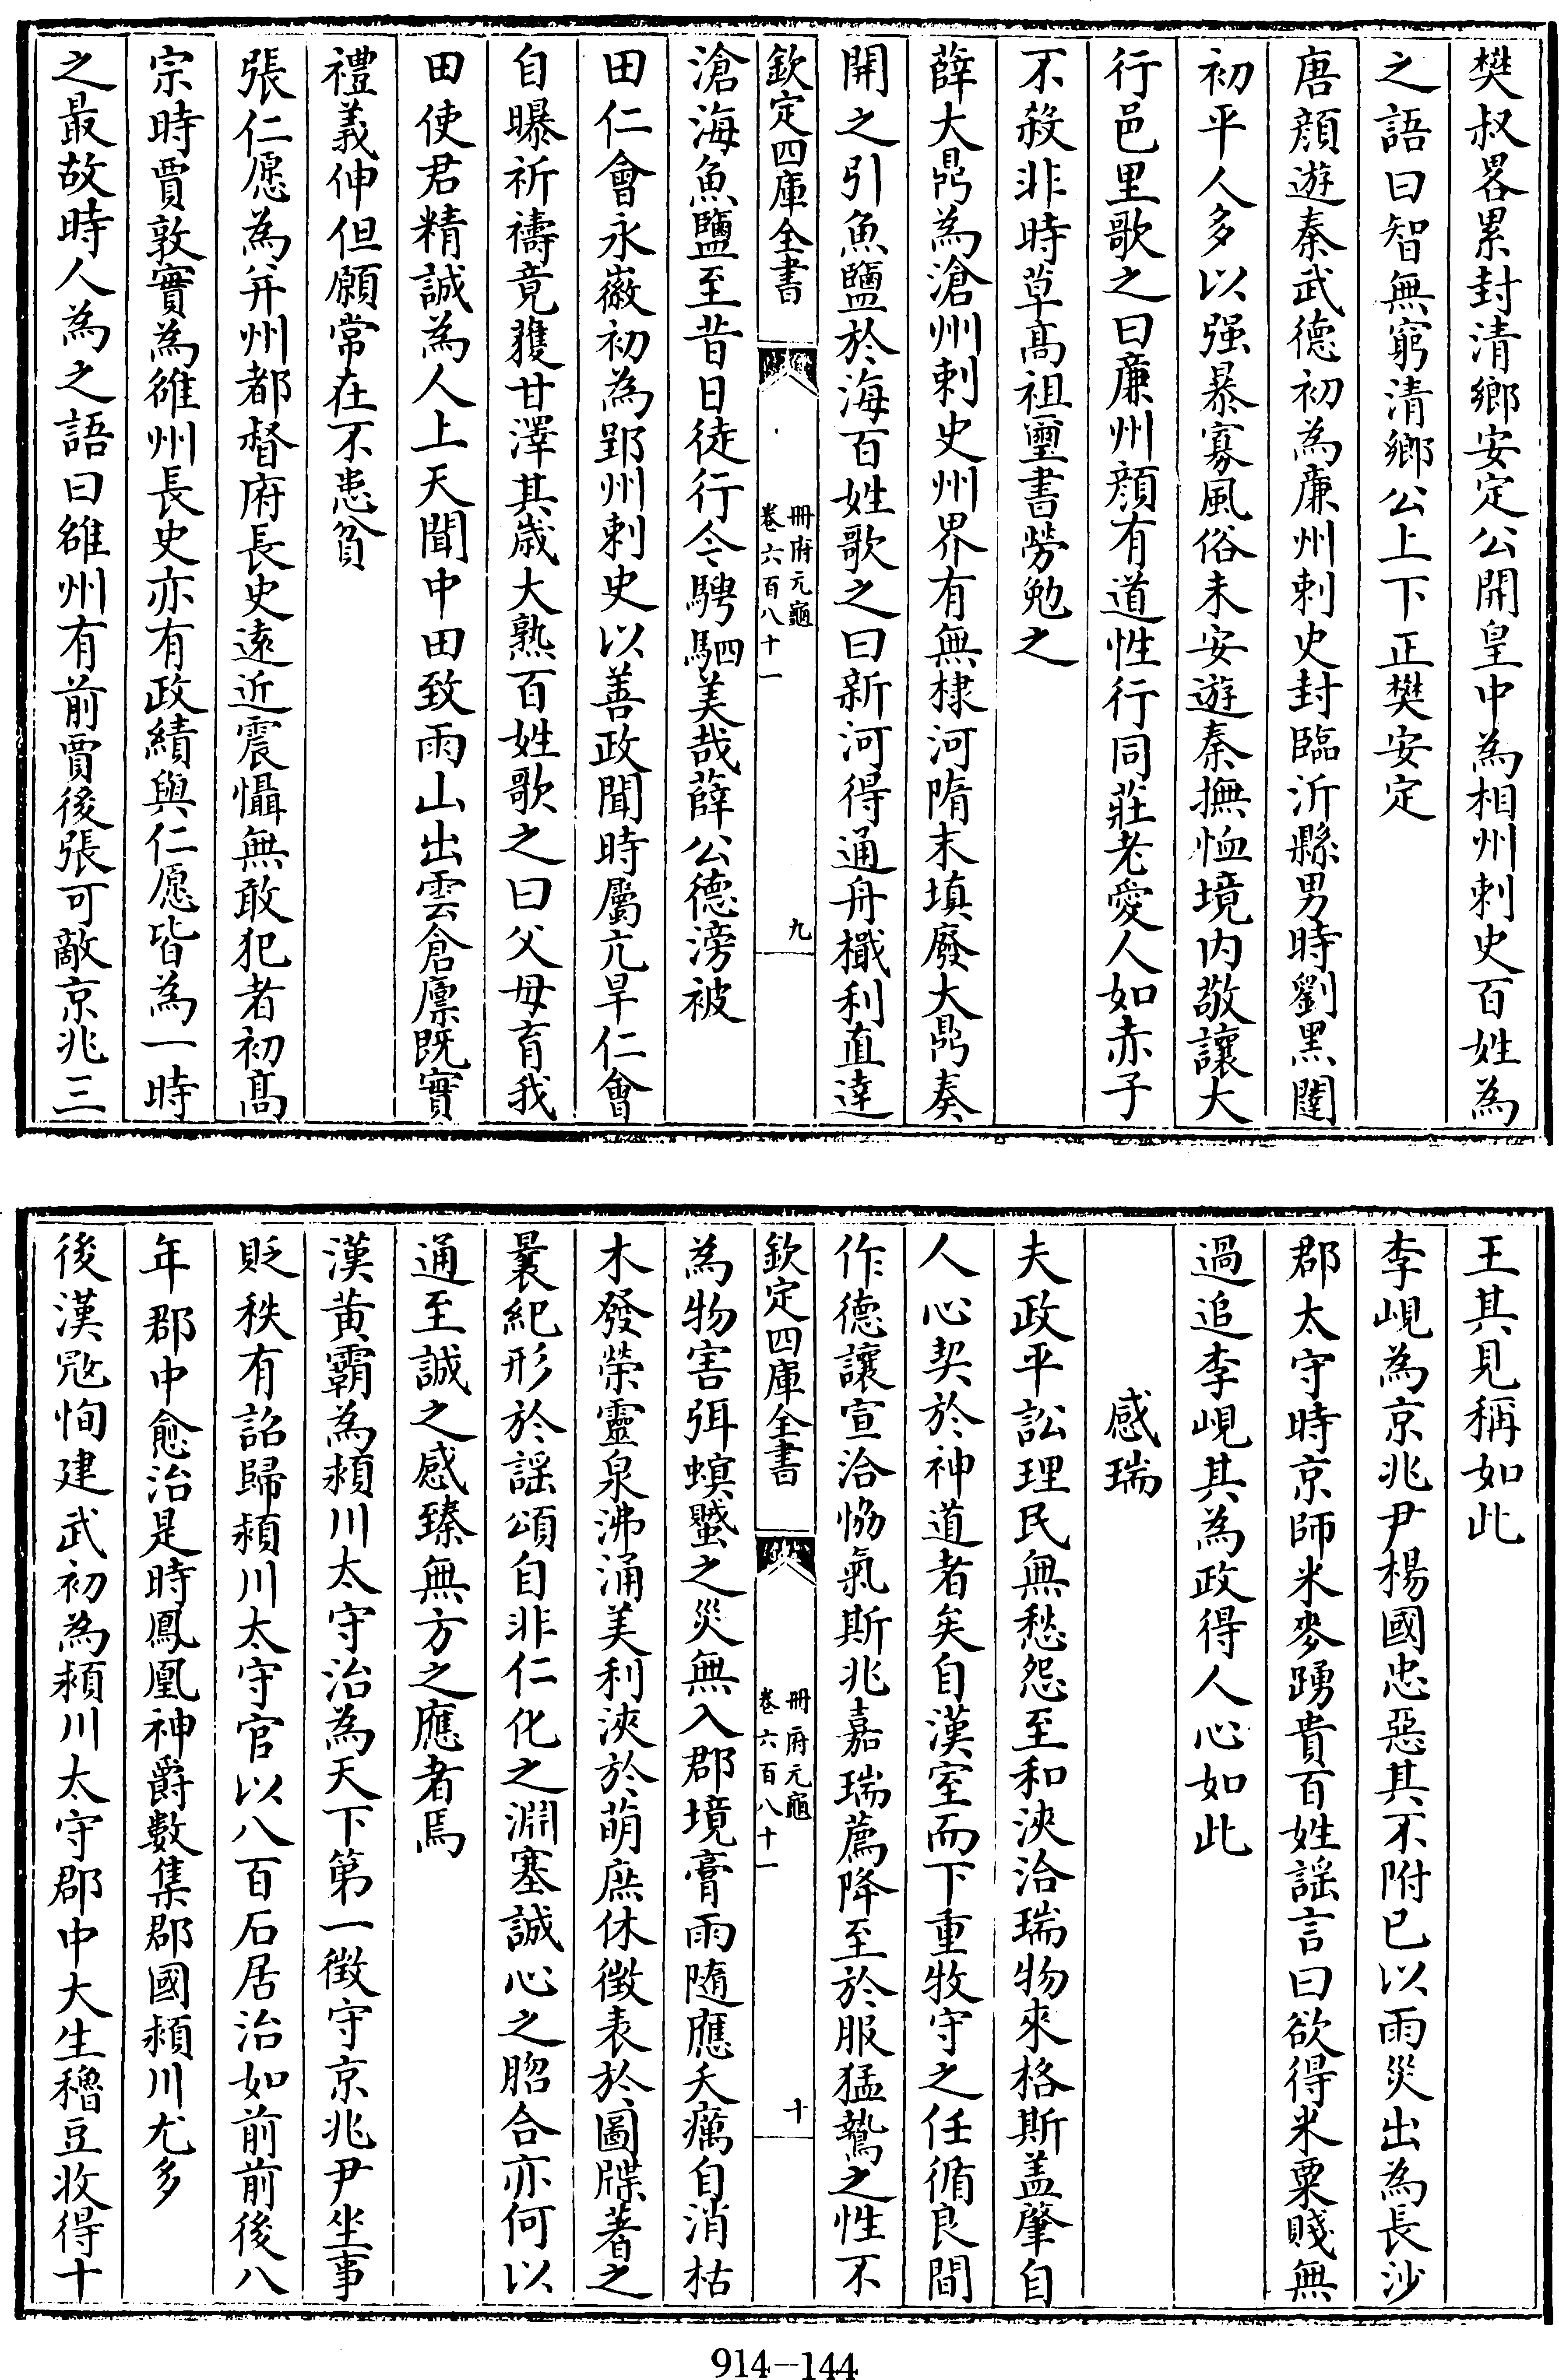 樊叔畧累封清鄉安定公開皇中為相州刺史百姓為
之語曰智無窮清鄉公上下正樊安定
唐顔遊秦武德初為㢘州刺史封臨沂縣男時劉黑闥
初平人多以强暴寡風俗未安遊秦撫恤境内敬讓大
行邑里歌之曰㢘州顔有道性行同莊老愛人如赤子
不殺非時草髙祖璽書勞勉之
薛大鼎為滄州刺史州界有無棣河隋末填廢大鼎奏
開之引魚鹽於海百姓歌之曰新河得通舟檝利直達
欽定四庫全書
冊府元龜
卷六百八十一
九
滄海魚鹽至昔日徒行今騁駟美哉薛公德滂被
田仁會永徽初為郢州刺史以善政聞時屬亢旱仁會
自曝祈禱竟獲甘澤其歲大熟百姓歌之曰父母育我
田使君精誠為人上天聞中田致雨山出雲倉廩既實
禮義伸但願常在不患貧
張仁愿為并州都督府長史逺近震懾無敢犯者初髙
宗時賈敦實為雒州長史亦有政績與仁愿皆為一時
之最故時人為之語曰雒州有前賈後張可敵京兆三
王其見稱如此
李峴為京兆尹楊國忠惡其不附已以雨災出為長沙
郡太守時京師米麥踴貴百姓謡言曰欲得米粟賤無
過追李峴其為政得人心如此
感瑞
夫政平訟理民無愁怨至和浹洽瑞物來格斯盖肇自
人心契於神道者矣自漢室而下重牧守之任循良間
作德讓宣洽恊氣斯兆嘉瑞薦降至於服猛鷙之性不
欽定四庫全書
冊府元龜
卷六百八十一
十
為物害弭螟蟘之災無入郡境膏雨隨應夭癘自消枯
木發榮靈泉沸涌美利浹於萌庶休徴表於圖牒著之
曩紀形於謡頌自非仁化之淵塞誠心之脗合亦何以
通至誠之感臻無方之應者焉
漢黄霸為頴川太守治為天下第一徴守京兆尹坐事
貶秩有詔歸頴川太守官以八百石居治如前前後八
年郡中愈治是時鳳凰神爵數集郡國頴川尤多
後漢冦恂建武初為頴川太守郡中大生穭豆收得十
914-144